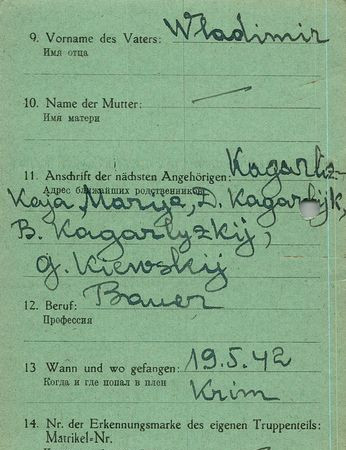 9. Vorname des Vaters: Wladimir
Имя отца
10. Name der Mutter: —
Имя матери
11. Anschrift der nächsten Angehörigen: Kagarliz-
Адрес ближайших родственников
Kaja Marija, D. Kagarlijk,
B. Kagarlyzkij,
G. Kiewskij
12. Beruf: Bauer
Профессия
13 Wann und wo gefangen: 19.5.42
Когда и где попал в плен
Krim
14. Nr. der Erkennungsmarke des eigenen Truppenteils:
Matrikel-Nr.